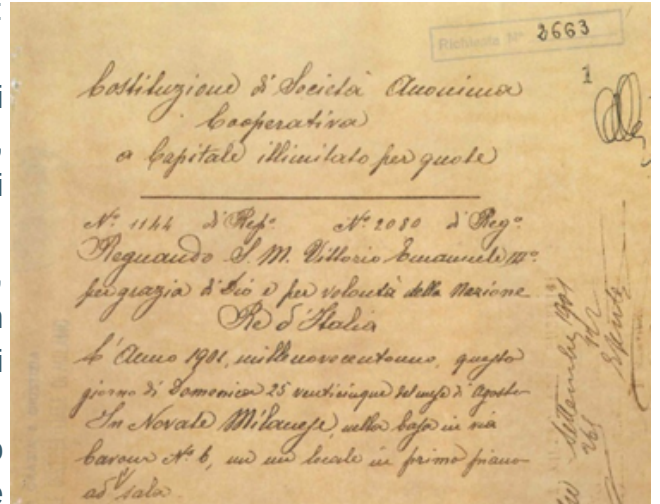 Richiesta N° 2663
1
Costituzione di Società Anonima
Cooperativa
a Capitale illimitato per quote
N°. 1144 di Rep°. N°. 2080 di Reg°
Regnando S. M. Vittorio Emanuele III°.
per grazia di Dio e per volontà della Nazione
Re d'Italia
L'Anno 1901, millenovecentouno, questo
giorno di Domenica 25 venticinque del mese di Agosto
In Novate Milanese, nella Casa in via
Cavour N°. 6, in un locale in primo piano
ad sala
Settembre 1901